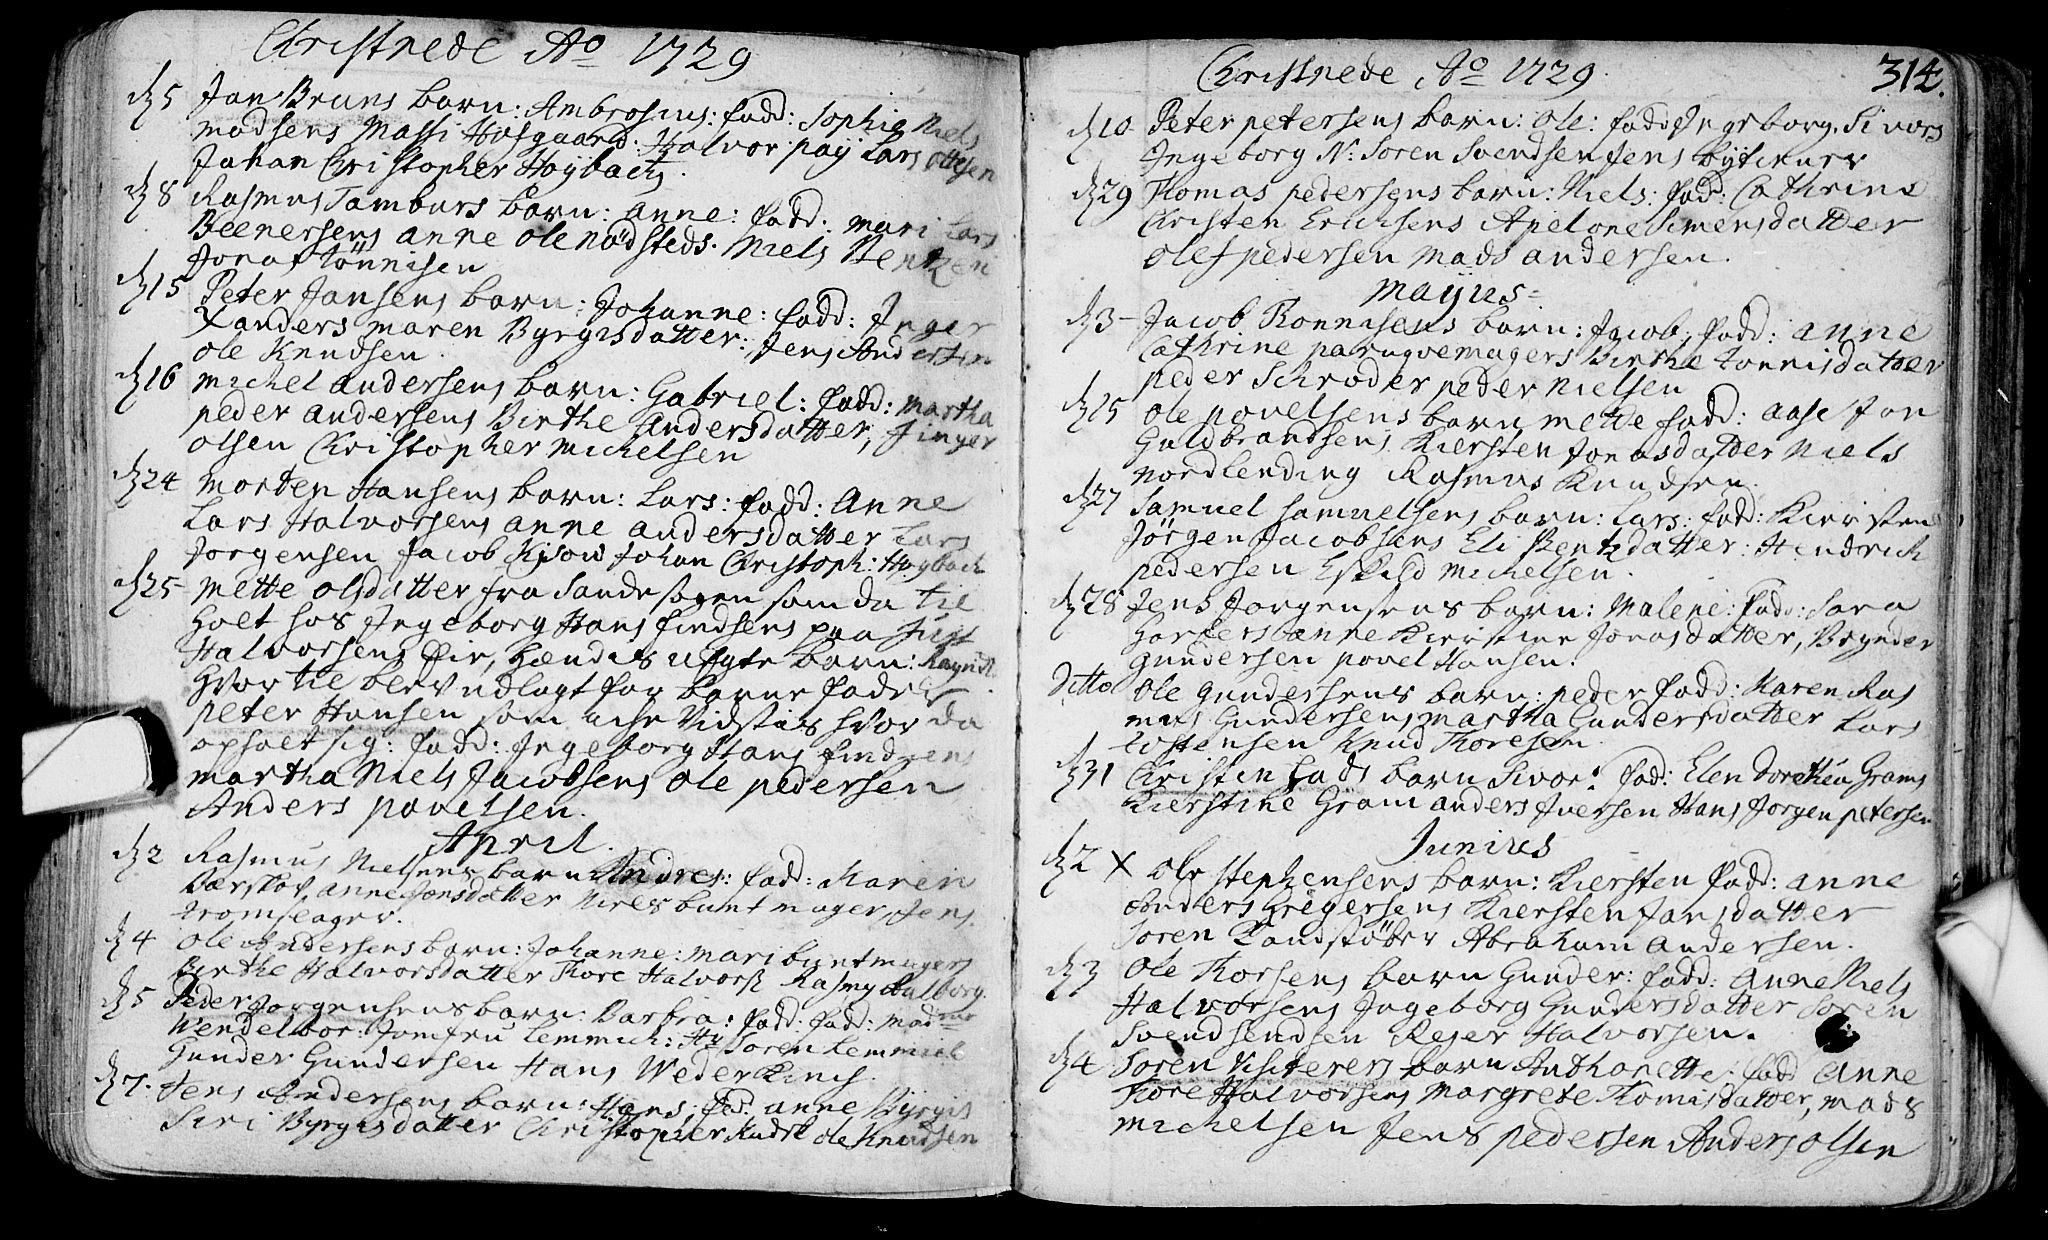 Christnede Ao 1729
d. 5 Jan Bruns barn: Ambrosius: fadd: Sophie Niels
madsens Massi Hofgaard: Halvor paÿ Lars ottesen
Johan Christopher Höybach.
d. 8 Rasmus Tamburs barn: anne: fadd: mari Lars
Beenersens anne ole nödsteds. Niels Bentzen
Jonas tönnisen
d. 15 Peter Jansens barn: Johanne: fadd: Inger
Xanders maren Byrgisdatter: Jens Andersen
ole Knudsen.
d. 16 michel andersens barn: Gabriel: fadd: martha
peder andersens Birthe Andersdatter,
olsen Christopher michelsen
d. 24 morten Hansens barn: Lars: fadd: Anne
Lars Halvorsens anne andersdatter Lars
Jorgensen Jacob Johan Christoph: Höybach
d. 25 mette olsdatter fra Sande sogn som da til
holt hos Ingeborg Hans findsens paa
Halvorsens Eie, hændes uægte barn:
hvor til blev udlagt for barne fader
peter Hansen som iche vidstes hvor da
opholt sig: fadd: Ingeborg Hans findsens
martha Niels Jacobsens ole pedersen
Anders povelsen.
April.
d. 2 Rasmus Nielsens barn Andres: fadd: Karen
anne Jonsdatter Niels buntmager, Jens

d. 4 ole Andersens barn: Johanne: mari buntmagers
Birthe Halvorsdatter Thore Halvorss Rasmus Aalborg.
d. 5 Peder Jorgensens barn: Barbra: fadd: fadd: mad
Wendelboe: Jomfru Lemmich: Hr Soren Lemmich
Gunder Gundersen Hans Wederkinch.
d. 7. Jens Andersens barn: Hans: fad: anne Byrgis
Siri Byrgisdatter Christopher ole Knudsen
Christnede Ao 1729. 314.
d. 10 Peter petersens barn: ole: fadd Ingeborg Sivors
Ingeborg N: Soren Svendsen Jens
d. 29 Thomas pedersens barn: Niels: fad: Cathrine
Christen Ericksens Apelone Simensdatter
olef pedersen mads andersen.
Majus
d. 3 Jacob Ronnisens barn: Jacob: fadd: anne
Cathrine paruqvemagers Birthe tonnisdatter
peder Schroder peder Nielsen
d. 15 ole povelsens barn mette fadd: aase Jon
Guldbrandsens Kiersten Jonasdatter Niels
nordlending Rasmus Knudsen.
d. 27 Samuel samuelsens barn: Lars: fad: Kiersten
Jörgen Jacobsens Eli Bentzdatter: Hendrick
pedersen Eskild michelsen.
d. 28 Jens Jorgensens barn: malene: fadd: Sara
anne Kierstine Jonasdatter, Brynder
Gundersen povel Hansen.
Ditto ole Gundersens barn: peder fadd: Karen Ras
mus Gundersens martha Gundersdatter Lars
tostensen Knud Thoresen.
d. 31 Christen Lads barn Sivor: fad: Elen Dorethea Grams
Kierstine Gram anders Iversen Hans Jorgen petersen
Junius
d. 2 X ole stephensens barn: Kiersten fadd: anne
anders Gregersens Kiersten Jansdatter
Soren Abraham andersen.
d. 3 ole Thorsens barn Gunder: fadd: Anne Niels
Halvorsens Ingeborg Gundersdatter Soren
Svendsendsen Reier Halvorsen.
d. 4 Soren Visiterers barn Anthonette: fadd anne
Thore Halvorsens Margrete Thomisdatter, mads
michelsen Jens pedersen Anders olsen